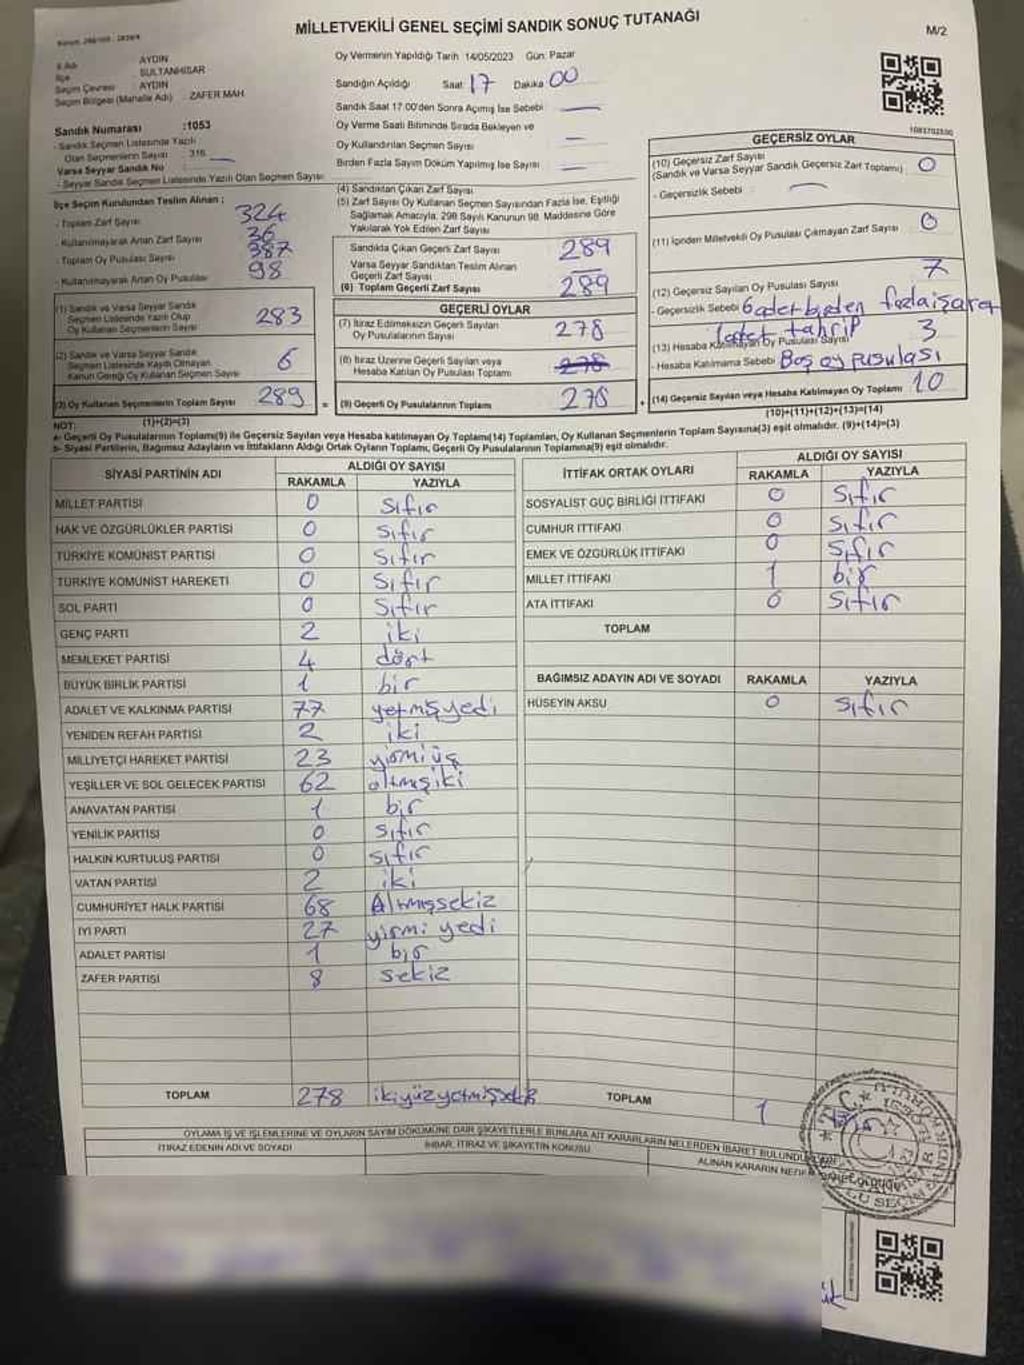 MİLLETVEKİLİ GENEL SEÇİMİ SANDIK SONUÇ TUTANAĞI
M/2
İl Adı AYDIN
İlçe SULTANHİSAR
Seçim Çevresi AYDIN
Seçim Bölgesi (Mahalle Adı) : ZAFER MAH.
Sandık Numarası :1053
- Sandık Seçmen Listesinde Yazılı
Olan Seçmenlerin Sayısı : 316
Varsa Seyyar Sandık No
- Seyyar Sandık Seçmen Listesinde Yazılı Olan Seçmen Sayısı
Oy Vermenin Yapıldığı Tarih 14/05/2023 Gün: Pazar
Sandığın Açıldığı Saat 17 Dakika 00
Sandık Saat 17.00'den Sonra Açımış İse Sebebi
Oy Verme Saati Bitiminde Sırada Bekleyen ve
Oy Kullandırılan Seçmen Sayısı
Birden Fazla Sayım Döküm Yapılmış İse Sayısı
İlçe Seçim Kurulundan Teslim Alınan ;
- Toplam Zarf Sayısı 324
- Kullanılmayarak Artan Zarf Sayısı 36
- Toplam Oy Pusulası Sayısı 387
- Kullanılmayarak Artan Oy Pusulası 98
(1) Sandık ve Varsa Seyyar Sandık
Seçmen Listesinde Yazılı Olup
Oy Kullanan Seçmenlerin Sayısı 283
(2) Sandık ve Varsa Seyyar Sandık
Seçmen Listesinde Kaydı Olmayan
Kanun Gereği Oy Kullanan Seçmen Sayısı 6
(3) Oy Kullanan Seçmenlerin Toplam Sayısı 289
(1)+(2)=(3)
(4) Sandıktan Çıkan Zarf Sayısı
(5) Zarf Sayısı Oy Kullanan Seçmen Sayısından Fazla İse, Eşitliği
Sağlamak Amacıyla, 298 Sayılı Kanunun 98. Maddesine Göre
Yakılarak Yok Edilen Zarf Sayısı
Sandıkta Çıkan Geçerli Zarf Sayısı 289
Varsa Seyyar Sandıktan Teslim Alınan
Geçerli Zarf Sayısı
(6) Toplam Geçerli Zarf Sayısı 289
GEÇERLİ OYLAR
(7) İtiraz Edilmeksizin Geçerli Sayılan
Oy Pusulalarının Sayısı 278
(8) İtiraz Üzerine Geçerli Sayılan veya
Hesaba Katılan Oy Pusulası Toplamı 278
= (9) Geçerli Oy Pusulalarının Toplamı 278 +
GEÇERSİZ OYLAR
(10) Geçersiz Zarf Sayısı
(Sandık ve Varsa Seyyar Sandık Geçersiz Zarf Toplamı) 0
- Geçersizlik Sebebi
(11) İçinden Milletvekili Oy Pusulası Çıkmayan Zarf Sayısı 0
(12) Geçersiz Sayılan Oy Pusulası Sayısı 7
- Geçersizlik Sebebi 6 adet birden fazla işaret
1 adet tahrip
(13) Hesaba Katılmayan Oy Pusulası Sayısı 3
- Hesaba Katılmama Sebebi Boş oy pusulası
(14) Geçersiz Sayılan veya Hesaba Katılmayan Oy Toplamı 10
(10)+(11)+(12)+(13)=(14)
NOT:
a- Geçerli Oy Pusulalarının Toplamı(9) ile Geçersiz Sayılan veya Hesaba katılmayan Oy Toplamı(14) Toplamları, Oy Kullanan Seçmenlerin Toplam Sayısına(3) eşit olmalıdır. (9)+(14)=(3)
b- Siyasi Partilerin, Bağımsız Adayların ve İttifakların Aldığı Ortak Oyların Toplamı, Geçerli Oy Pusulalarının Toplamına(9) eşit olmalıdır.
SİYASİ PARTİNİN ADI ALDIĞI OY SAYISI
RAKAMLA YAZIYLA
MİLLET PARTİSİ 0 sıfır
HAK VE ÖZGÜRLÜKLER PARTİSİ 0 sıfır
TÜRKİYE KOMÜNİST PARTİSİ 0 sıfır
TÜRKİYE KOMÜNİST HAREKETİ 0 sıfır
SOL PARTİ 0 sıfır
GENÇ PARTİ 2 iki
MEMLEKET PARTİSİ 4 dört
BÜYÜK BİRLİK PARTİSİ 1 bir
ADALET VE KALKINMA PARTİSİ 77 yetmişyedi
YENİDEN REFAH PARTİSİ 2 iki
MİLLİYETÇİ HAREKET PARTİSİ 23 yirmiüç
YEŞİLLER VE SOL GELECEK PARTİSİ 62 altmışiki
ANAVATAN PARTİSİ 1 bir
YENİLİK PARTİSİ 0 sıfır
HALKIN KURTULUŞ PARTİSİ 0 sıfır
VATAN PARTİSİ 2 iki
CUMHURİYET HALK PARTİSİ 68 Altmışsekiz
İYİ PARTİ 27 yirmi yedi
ADALET PARTİSİ 1 bir
ZAFER PARTİSİ 8 sekiz
TOPLAM 278 ikiyüzyetmişsekiz
İTTİFAK ORTAK OYLARI ALDIĞI OY SAYISI
RAKAMLA YAZIYLA
SOSYALİST GÜÇ BİRLİĞİ İTTİFAKI 0 sıfır
CUMHUR İTTİFAKI 0 sıfır
EMEK VE ÖZGÜRLÜK İTTİFAKI 0 sıfır
MİLLET İTTİFAKI 1 bir
ATA İTTİFAKI 0 sıfır
TOPLAM
BAĞIMSIZ ADAYIN ADI VE SOYADI RAKAMLA YAZIYLA
HÜSEYİN AKSU 0 sıfır
TOPLAM 1
OYLAMA İŞ VE İŞLEMLERİNE VE OYLARIN SAYIM DÖKÜMÜNE DAİR ŞİKAYETLERLE BUNLARA AİT KARARLARIN NELERDEN İBARET BULUNDU
İTİRAZ EDENİN ADI VE SOYADI İHBAR, İTİRAZ VE ŞİKAYETİN KONUSU ALINAN KARARIN